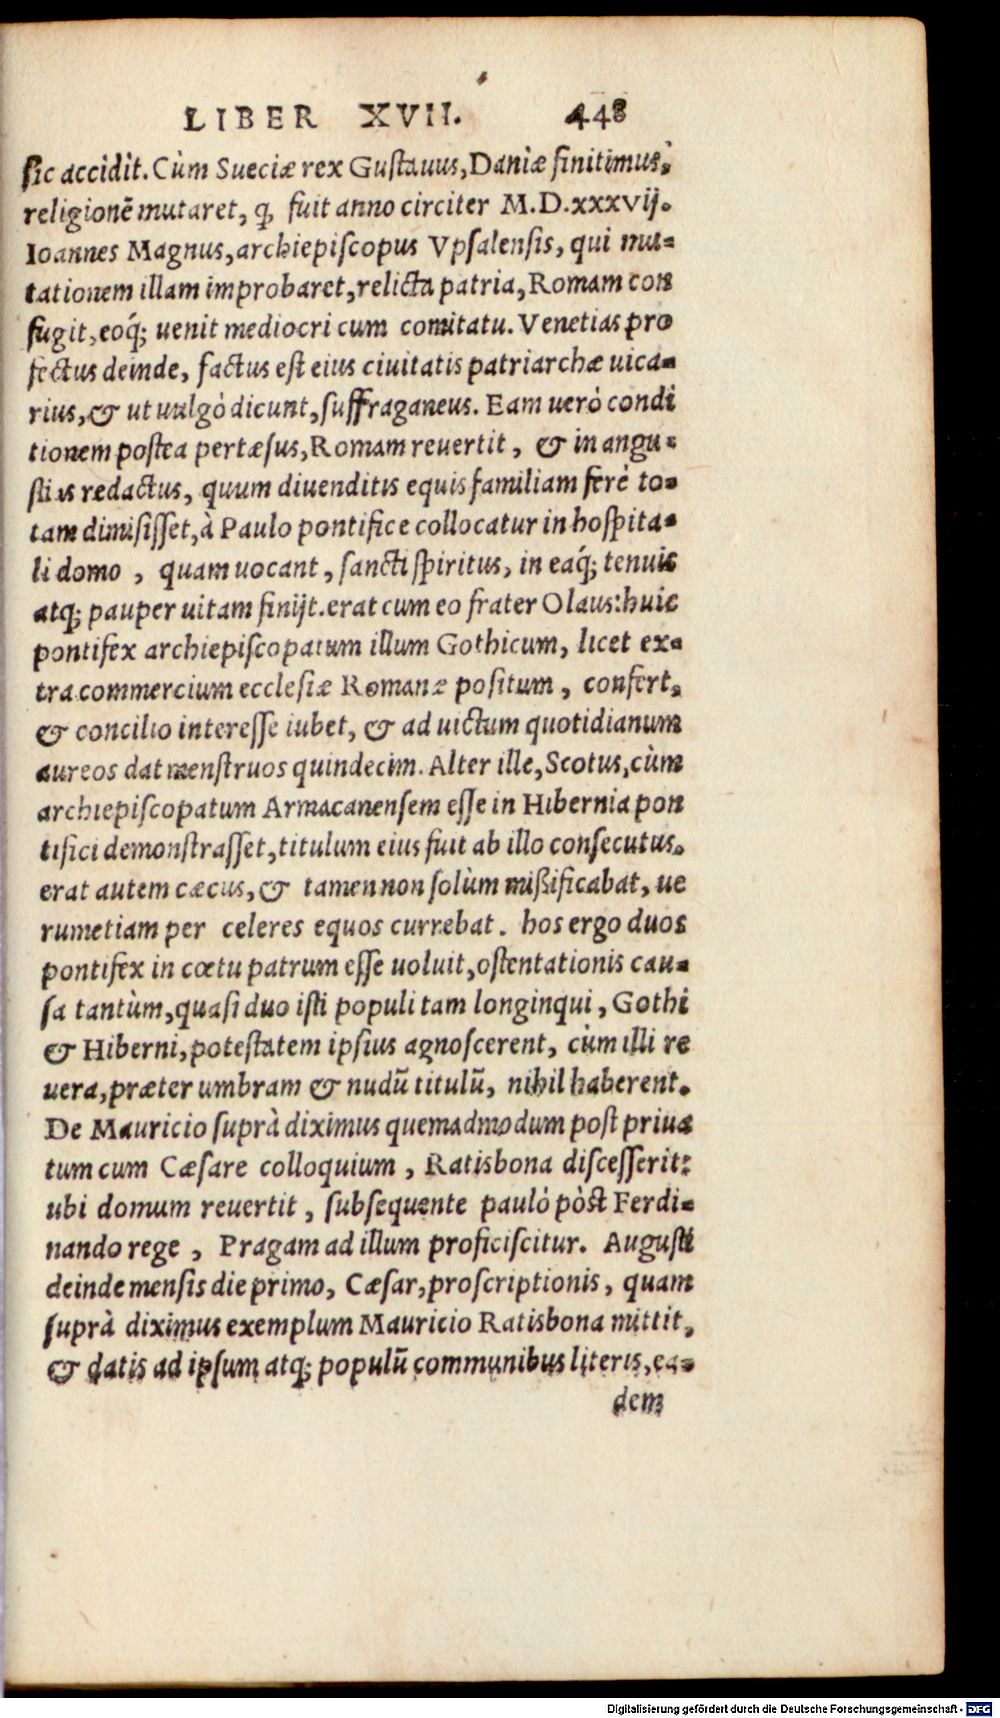 LIBER XVII. 448
sic accidit. Cùm Sueciæ rex Gustauus, Daniæ finitimus,
religionē mutaret, q̃ fuit anno circiter M.D.xxxvij.
Ioannes Magnus, archiepiscopus Vpsalensis, qui mu-
tationem illam improbaret, relicta patria, Romam con
fugit, eoq́; uenit mediocri cum comitatu. Venetias pro
fectus deinde, factus est eius ciuitatis patriarchæ uica-
rius, & ut uulgò dicunt, suffraganeus. Eam uerò condi
tionem postea pertæsus, Romam reuertit, & in angu-
stias redactus, quum diuenditis equis familiam ferè to-
tam dimisisset, à Paulo pontifice collocatur in hospita-
li domo, quam uocant, sancti spiritus, in eaq́; tenuis
atq; pauper uitam finijt. erat cum eo frater Olaus: huic
pontifex archiepiscopatum illum Gothicum, licet ex-
tra commercium ecclesiæ Romanæ positum, confert,
& concilio interesse iubet, & ad uictum quotidianum
aureos dat menstruos quindecim. Alter ille, Scotus, cùm
archiepiscopatum Armacanensem esse in Hibernia pon
tifici demonstrasset, titulum eius fuit ab illo consecutus.
erat autem cæcus, & tamen non solùm mißificabat, ue
rumetiam per celeres equos currebat. hos ergo duos
pontifex in cœtu patrum esse uoluit, ostentationis cau-
sa tantùm, quasi duo isti populi tam longinqui, Gothi
& Hiberni, potestatem ipsius agnoscerent, cùm illi re
uera, præter umbram & nudũ titulũ, nihil haberent.
De Mauricio suprà diximus quemadmodum post priua
tum cum Cæsare colloquium, Ratisbona discesserit:
ubi domum reuertit, subsequente paulò pòst Ferdi-
nando rege, Pragam ad illum proficiscitur. Augusti
deinde mensis die primo, Cæsar, proscriptionis, quam
suprà diximus exemplum Mauricio Ratisbona mittit,
& datis ad ipsum atq; populũ communibus literis, ea-
dem
Digitalisierung gefördert durch die Deutsche Forschungsgemeinschaft - DFG